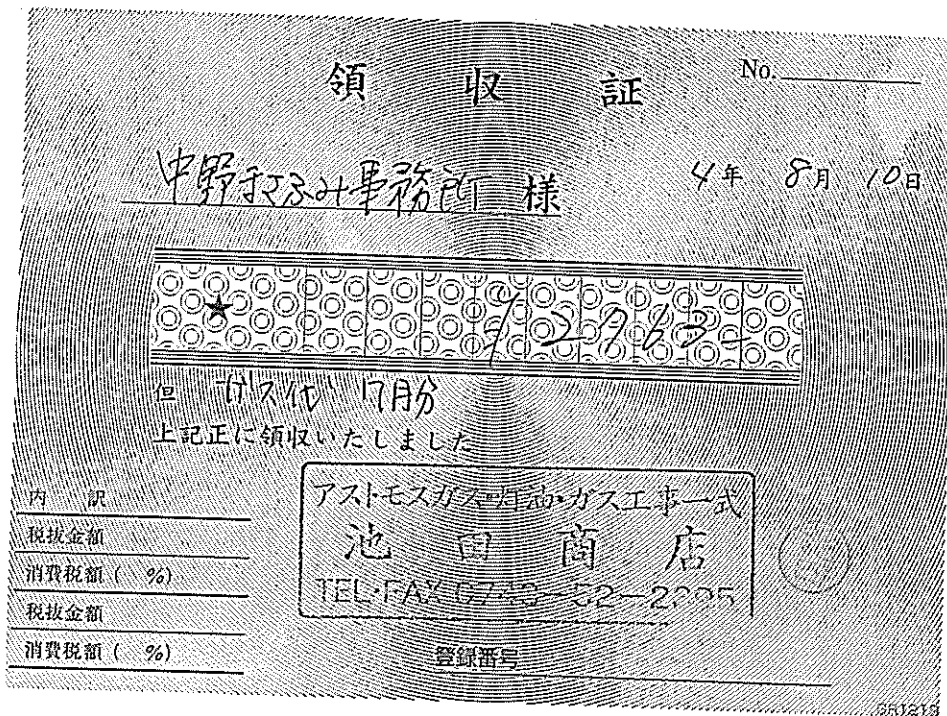 領収証
No.
中野まさふみ事務所 様
4年 8月 10日
★
但 ガス代 7月分
上記正に領収いたしました
内 訳
税抜金額
消費税額( %)
税抜金額
消費税額( %)
アストモスガス・灯油・ガス工事一式
池田商店
TEL・FAX
登録番号